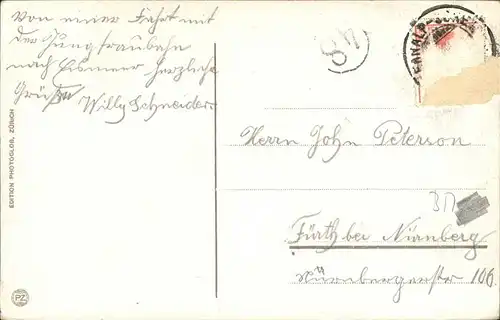 Von einer Fahrt mit
der Jungfraubahn
nach Eismeer herzliche
Grüße
Willy Schneider
Herrn John Peterson
Fürth bei Nürnberg
Nürnbergerstr 106.
EDITION PHOTOGLOB, ZÜRICH
PZ